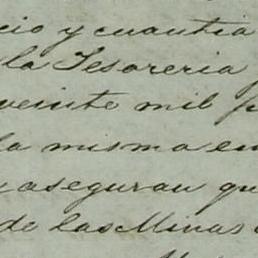 cio y cuantia
la Tesoreria
veinte mil
la misma en
aseguran qu
de las Minas